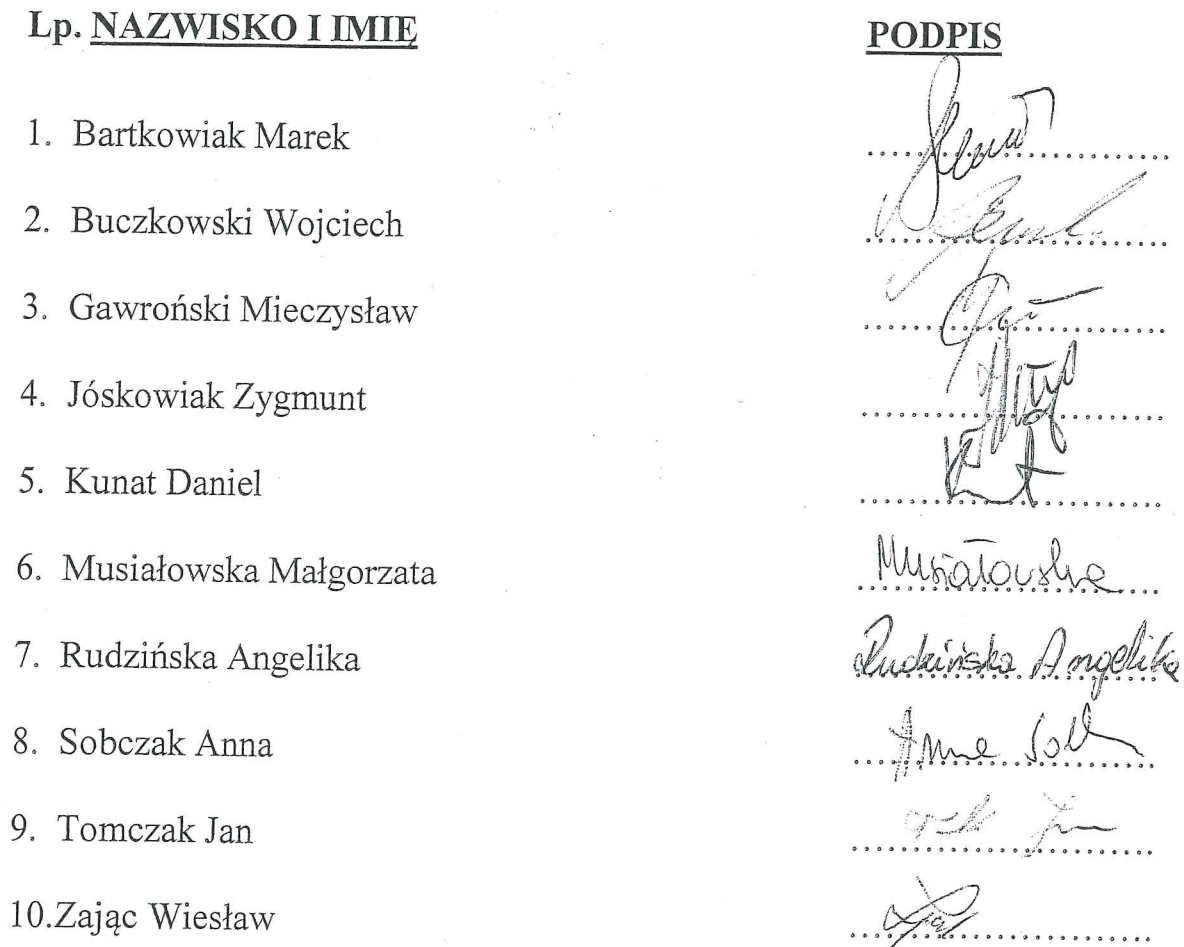 Lp. NAZWISKO I IMIĘ PODPIS
1. Bartkowiak Marek
2. Buczkowski Wojciech
3. Gawroński Mieczysław
4. Jóskowiak Zygmunt
5. Kunat Daniel
6. Musiałowska Małgorzata Musiałowska
7. Rudzińska Angelika Rudzińska Angelika
8. Sobczak Anna Anna
9. Tomczak Jan
10.Zając Wiesław